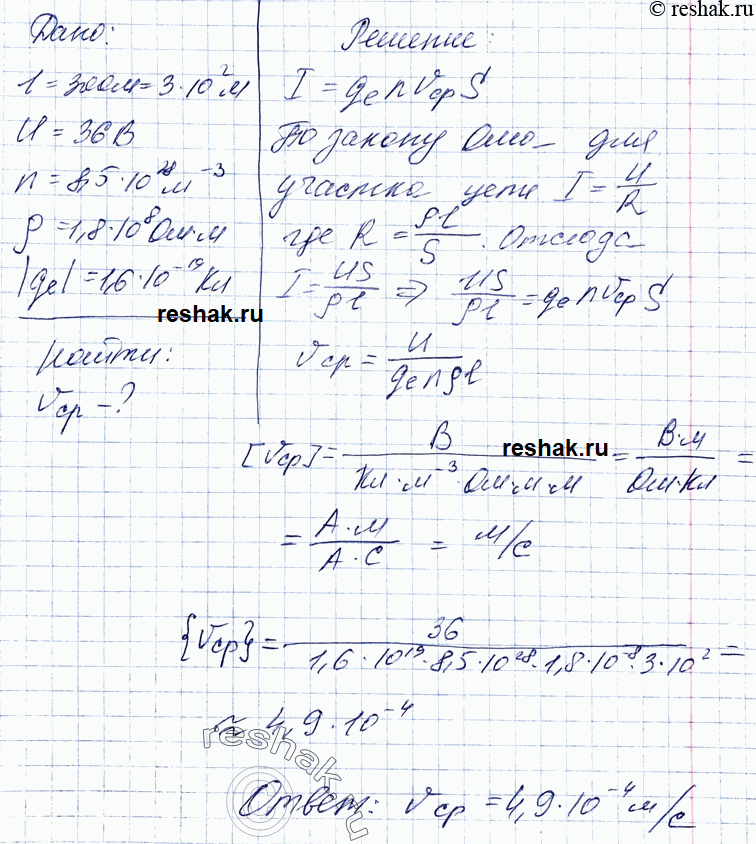 © reshak.ru
Дано:
l = 300м = 3·10²м
U = 36В
n = 8,5·10²⁸м⁻³
ρ = 1,8·10⁸Ом·м
|qe| = 1,6·10⁻¹⁹Кл
reshak.ru
Найти:
Vcp - ?
Решение:
I = qe n Vcp S
По закону Ома для
участка цепи I = U/R
где R = ρl/S. Отсюда
I = US/ρl ⇒ US/ρl = qe n Vcp S
Vcp = U/(qe n ρl)
[Vcp] = В/(Кл·м⁻³·Ом·м·м) = В·м/(Ом·Кл) =
reshak.ru
= А·м/(А·с) = м/с
{Vcp} = 36/(1,6·10¹⁹·8,5·10²⁸·1,8·10⁻⁸·3·10²) =
≈ 4,9·10⁻⁴
reshak.ru
Ответ: Vcp = 4,9·10⁻⁴ м/с